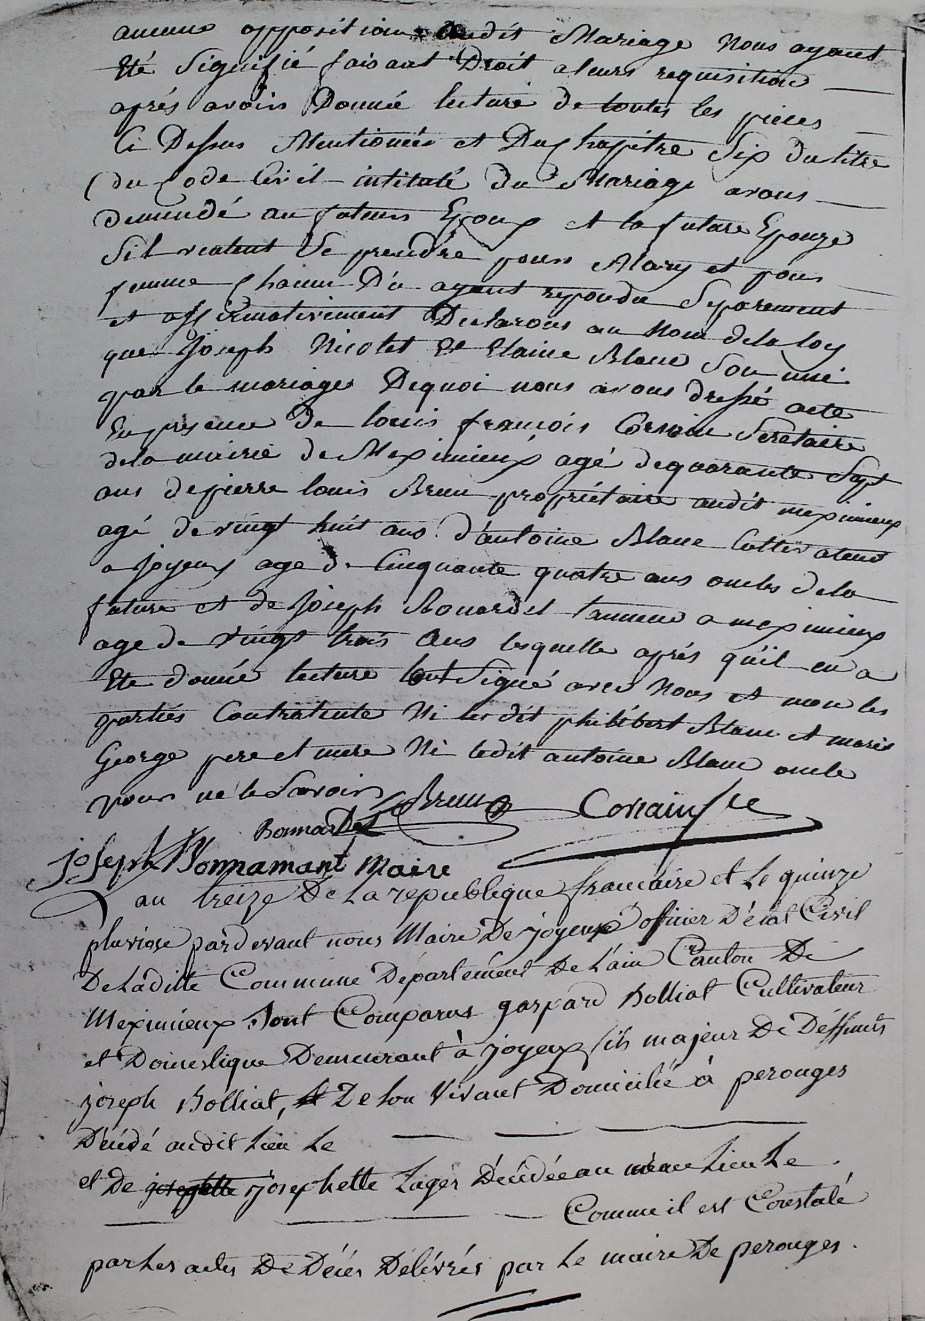 aucune opposition audit Mariage Nous ayant
Eté Signifié faisant Droit aleurs requisition
aprés avoir Donné lecture de toutes les pieces
Ci Dessus Mentionnées et Du Chapitre Six du titre
du Code Civil intitulé Du Mariage avons
demandé au futeur Epoux et la future Epouze
Sil veulent Se prendre pour Mary et pour
femme Chacun D'eu ayant repondu Separement
et affirmativement Declarons au Nom de la loy
que Joseph Nicolet Et Blanc Son uni
par le mariage Dequoi nous avons dressé acte
En presence De louis francois Corsain Secretaire
de la mairie de Meximieux agé dequarante Sept
ans de pierre louis Brun propriétaire audit meximieux
agé de vingt huit ans d'antoine Blanc Cultivateur
a Joyeux age de Cinquante quatre ans oncles de la
future et de Joseph Bonardel a meximieux
age de vingt trois ans lesquelle aprés qu'il en a
Eté donné lecture lont Signé avec Nous et non les
parties Contractente Ni ledit philibert Blanc et marie
George pere et mere Ni ledit antoine Blanc oncle
pour ne le Savoir
Brun Corsain Sre
Bonnardel
joseph Bonnamant Maire
an treize De La republique francaire et Le quinze
pluviose pardevant nous Maire De joyeux officier D'état Civil
De Ladite Commune Departement De L'ain Canton De
Meximieux Sont Comparus gaspard Bolliat Cultivateur
et Domestique Demeurant à joyeux fils majeur De Deffunts
joseph Bolliat, De Son Vivant Domicilié à perouges
Décédé audit Lieu Le
et De josephette Lager Décédée au même Lieu Le
Comme il est Constaté
par Les actes De Décès Délivrés par Le maire De perouges.